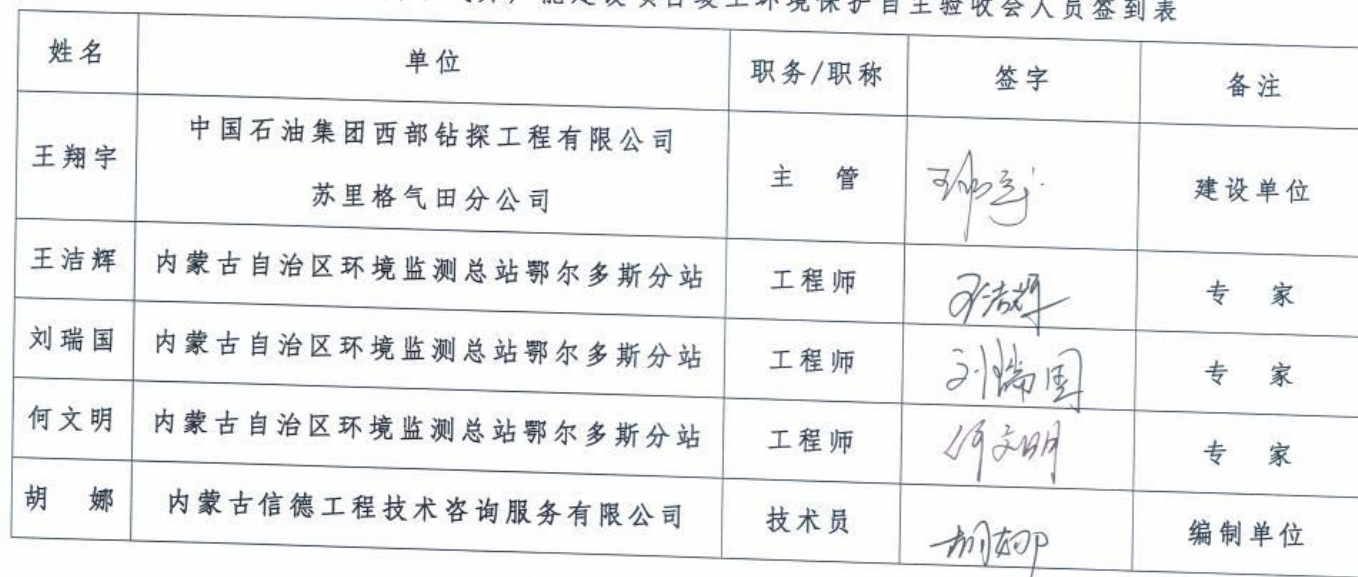 能建设项目竣工环境保护自主验收会人员签到表
姓名 单位 职务/职称 签字 备注
王翔宇 中国石油集团西部钻探工程有限公司
苏里格气田分公司 主 管 王翔宇 建设单位
王洁辉 内蒙古自治区环境监测总站鄂尔多斯分站 工程师 王洁辉 专 家
刘瑞国 内蒙古自治区环境监测总站鄂尔多斯分站 工程师 刘瑞国 专 家
何文明 内蒙古自治区环境监测总站鄂尔多斯分站 工程师 何文明 专 家
胡 娜 内蒙古信德工程技术咨询服务有限公司 技术员 胡娜 编制单位